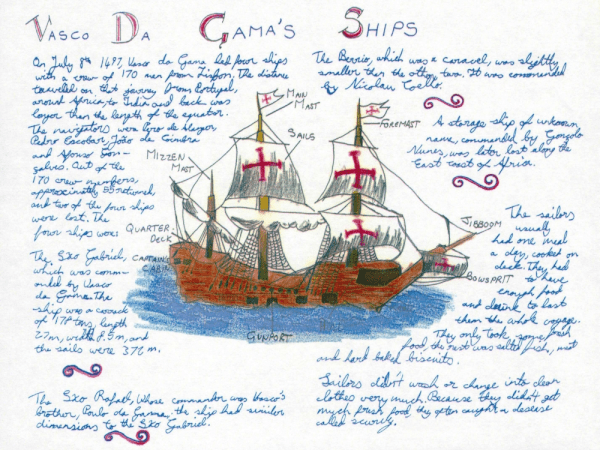 Vasco Da Gama's Ships
On July 8th 1497, Vasco da Gama led four ships
with a crew of 170 men from Lisbon. The distance
traveled on that journey from Portugal,
around Africa, to India and back was
longer than the length of the equator.
The navigators were Pero de Alenquer,
Pedro Escobar, João de Coimbra
and Afonso Gon-
çalves. Out of the
170 crew members,
approximately 55 returned,
and two of the four ships
were lost. The
four ships were:
The São Gabriel,
which was comm-
anded by Vasco
da Gama. The
ship was a carrack
of 178 tons, length
27m, width 8.5m, and
the sails were 372 m.
The São Rafael, whose commander was Vasco's
brother, Paulo da Gama, the ship had similar
dimensions to the São Gabriel.
Main
Mast
Sails
Foremast
Mizzen
Mast
Quarter-
Deck
Captain's
Cabin
Gunport
Jibboom
Bowsprit
The Berrio, which was a caravel, was slightly
smaller then the other two. It was commanded
by Nicolau Coelho.
A storage ship of unknown
name, commanded by Gonçalo
Nunes, was later lost along the
East Coast of Africa.
The sailors
usually
had one meal
a day, cooked on
deck. They had
to have
enough food
and drink to last
them the whole voyage.
They only took some fresh
food, the rest was salted fish, meat
and hard baked biscuits.
Sailors didn't wash or change into clean
clothes very much. Because they didn't get
much fresh food, they often caught a desease
called scurvy.